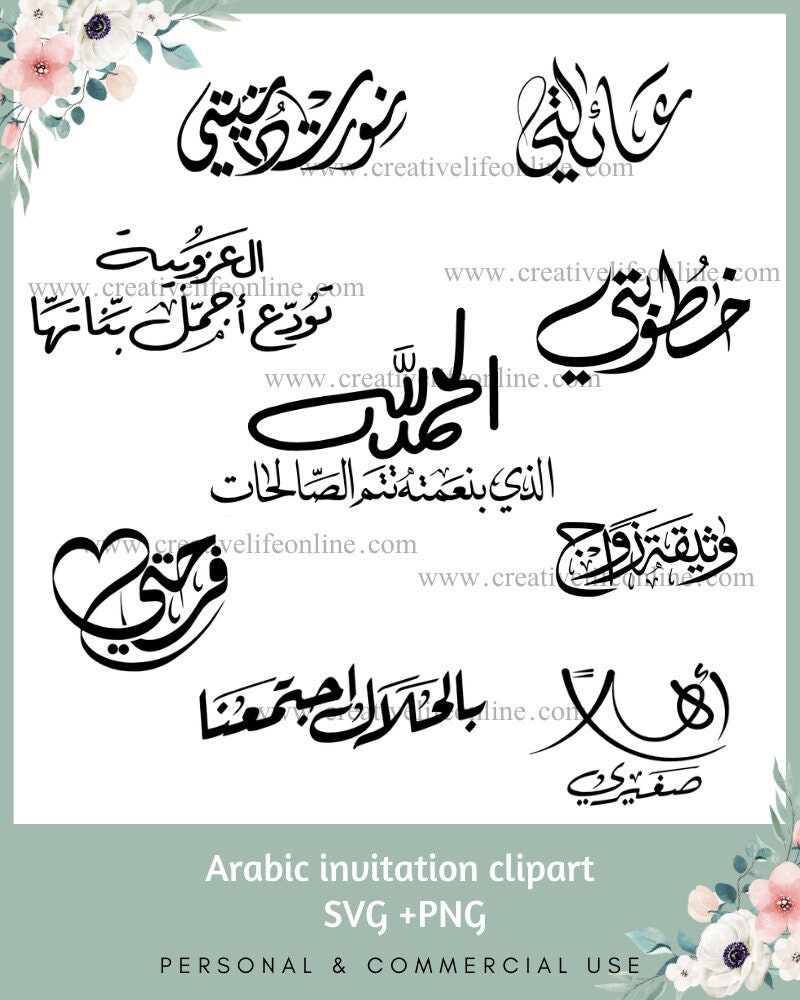 عائلتي
نورت دنيتي
www.creativelifeonline.com
العزوبية
تودّع أجمل بناتها
www.creativelifeonline.com
خطوبتي
www.creativelifeonline.com
الحمدلله
www.creativelifeonline.com
الذي بنعمته تتم الصّالحات
وثيقة زواج
www.creativelifeonline.com
فرحتي
www.creativelifeonline.com
أهلاً
صغيري
بالحلال اجتمعنا
www.creativelifeonline.com
Arabic invitation clipart
SVG +PNG
PERSONAL & COMMERCIAL USE